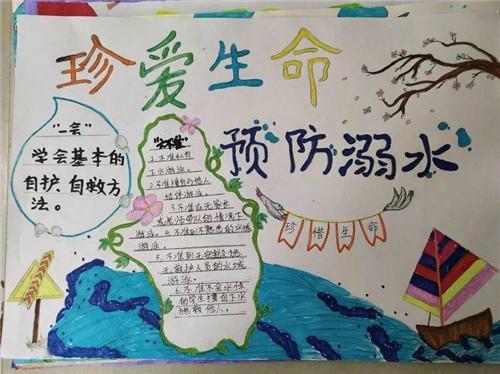 珍爱生命
预防溺水
"一会"
学会基本的
自护、自救方
法。
"六不准"
1.不准私自
下水游泳。
2.不准擅自与他人
结伴游泳。
3.不准在无家长
或老师带队的情况下
游泳。4.不准到不熟悉的水域
游泳。
5.不准到无安全设施、
无救护人员的水域
游泳。
6.不准不会水性
的学生擅自下水
施救他人。
珍惜生命